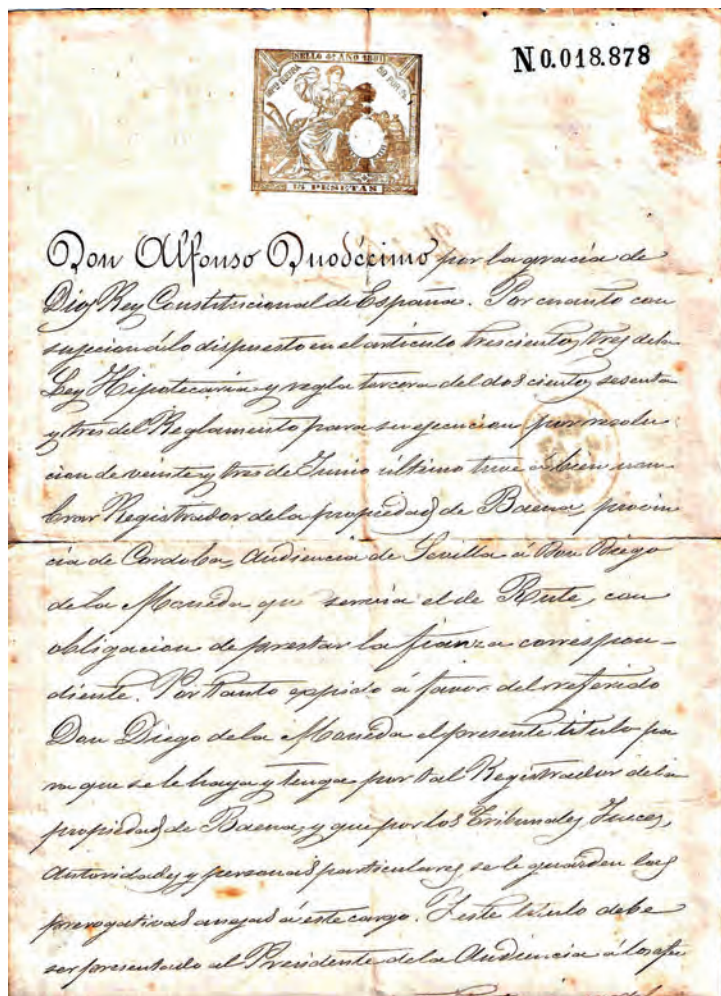 SELLO 4º AÑO 1881
N.0.018.878
75 PESETAS
Don Alfonso Duodécimo por la gracia de
Dios Rey Constitucional de España. Por cuanto con
sujecion á lo dispuesto en el artículo trescientos tres de la
Ley Hipotecaria y regla tercera del doscientos sesenta
y tres del Reglamento para su ejecucion por resolu-
cion de veinte y tres de Junio último tuve á bien nom-
brar Registrador de la propiedad de Baena, provin
cia de Cordoba, Audiencia de Sevilla á Don Diego
de la Moneda que servia el de Rute, con
obligacion de prestar la fianza correspon-
diente. Por tanto expido á favor del referido
Don Diego de la Moneda el presente título pa
ra que se le haya y tenga por tal Registrador de la
propiedad de Baena, y que por los Tribunales, Jueces,
Autoridades y personas particulares se le guarden las
prerogativas anejas á este cargo. Y este título debe
ser presentado al Presidente de la Audiencia á los efec